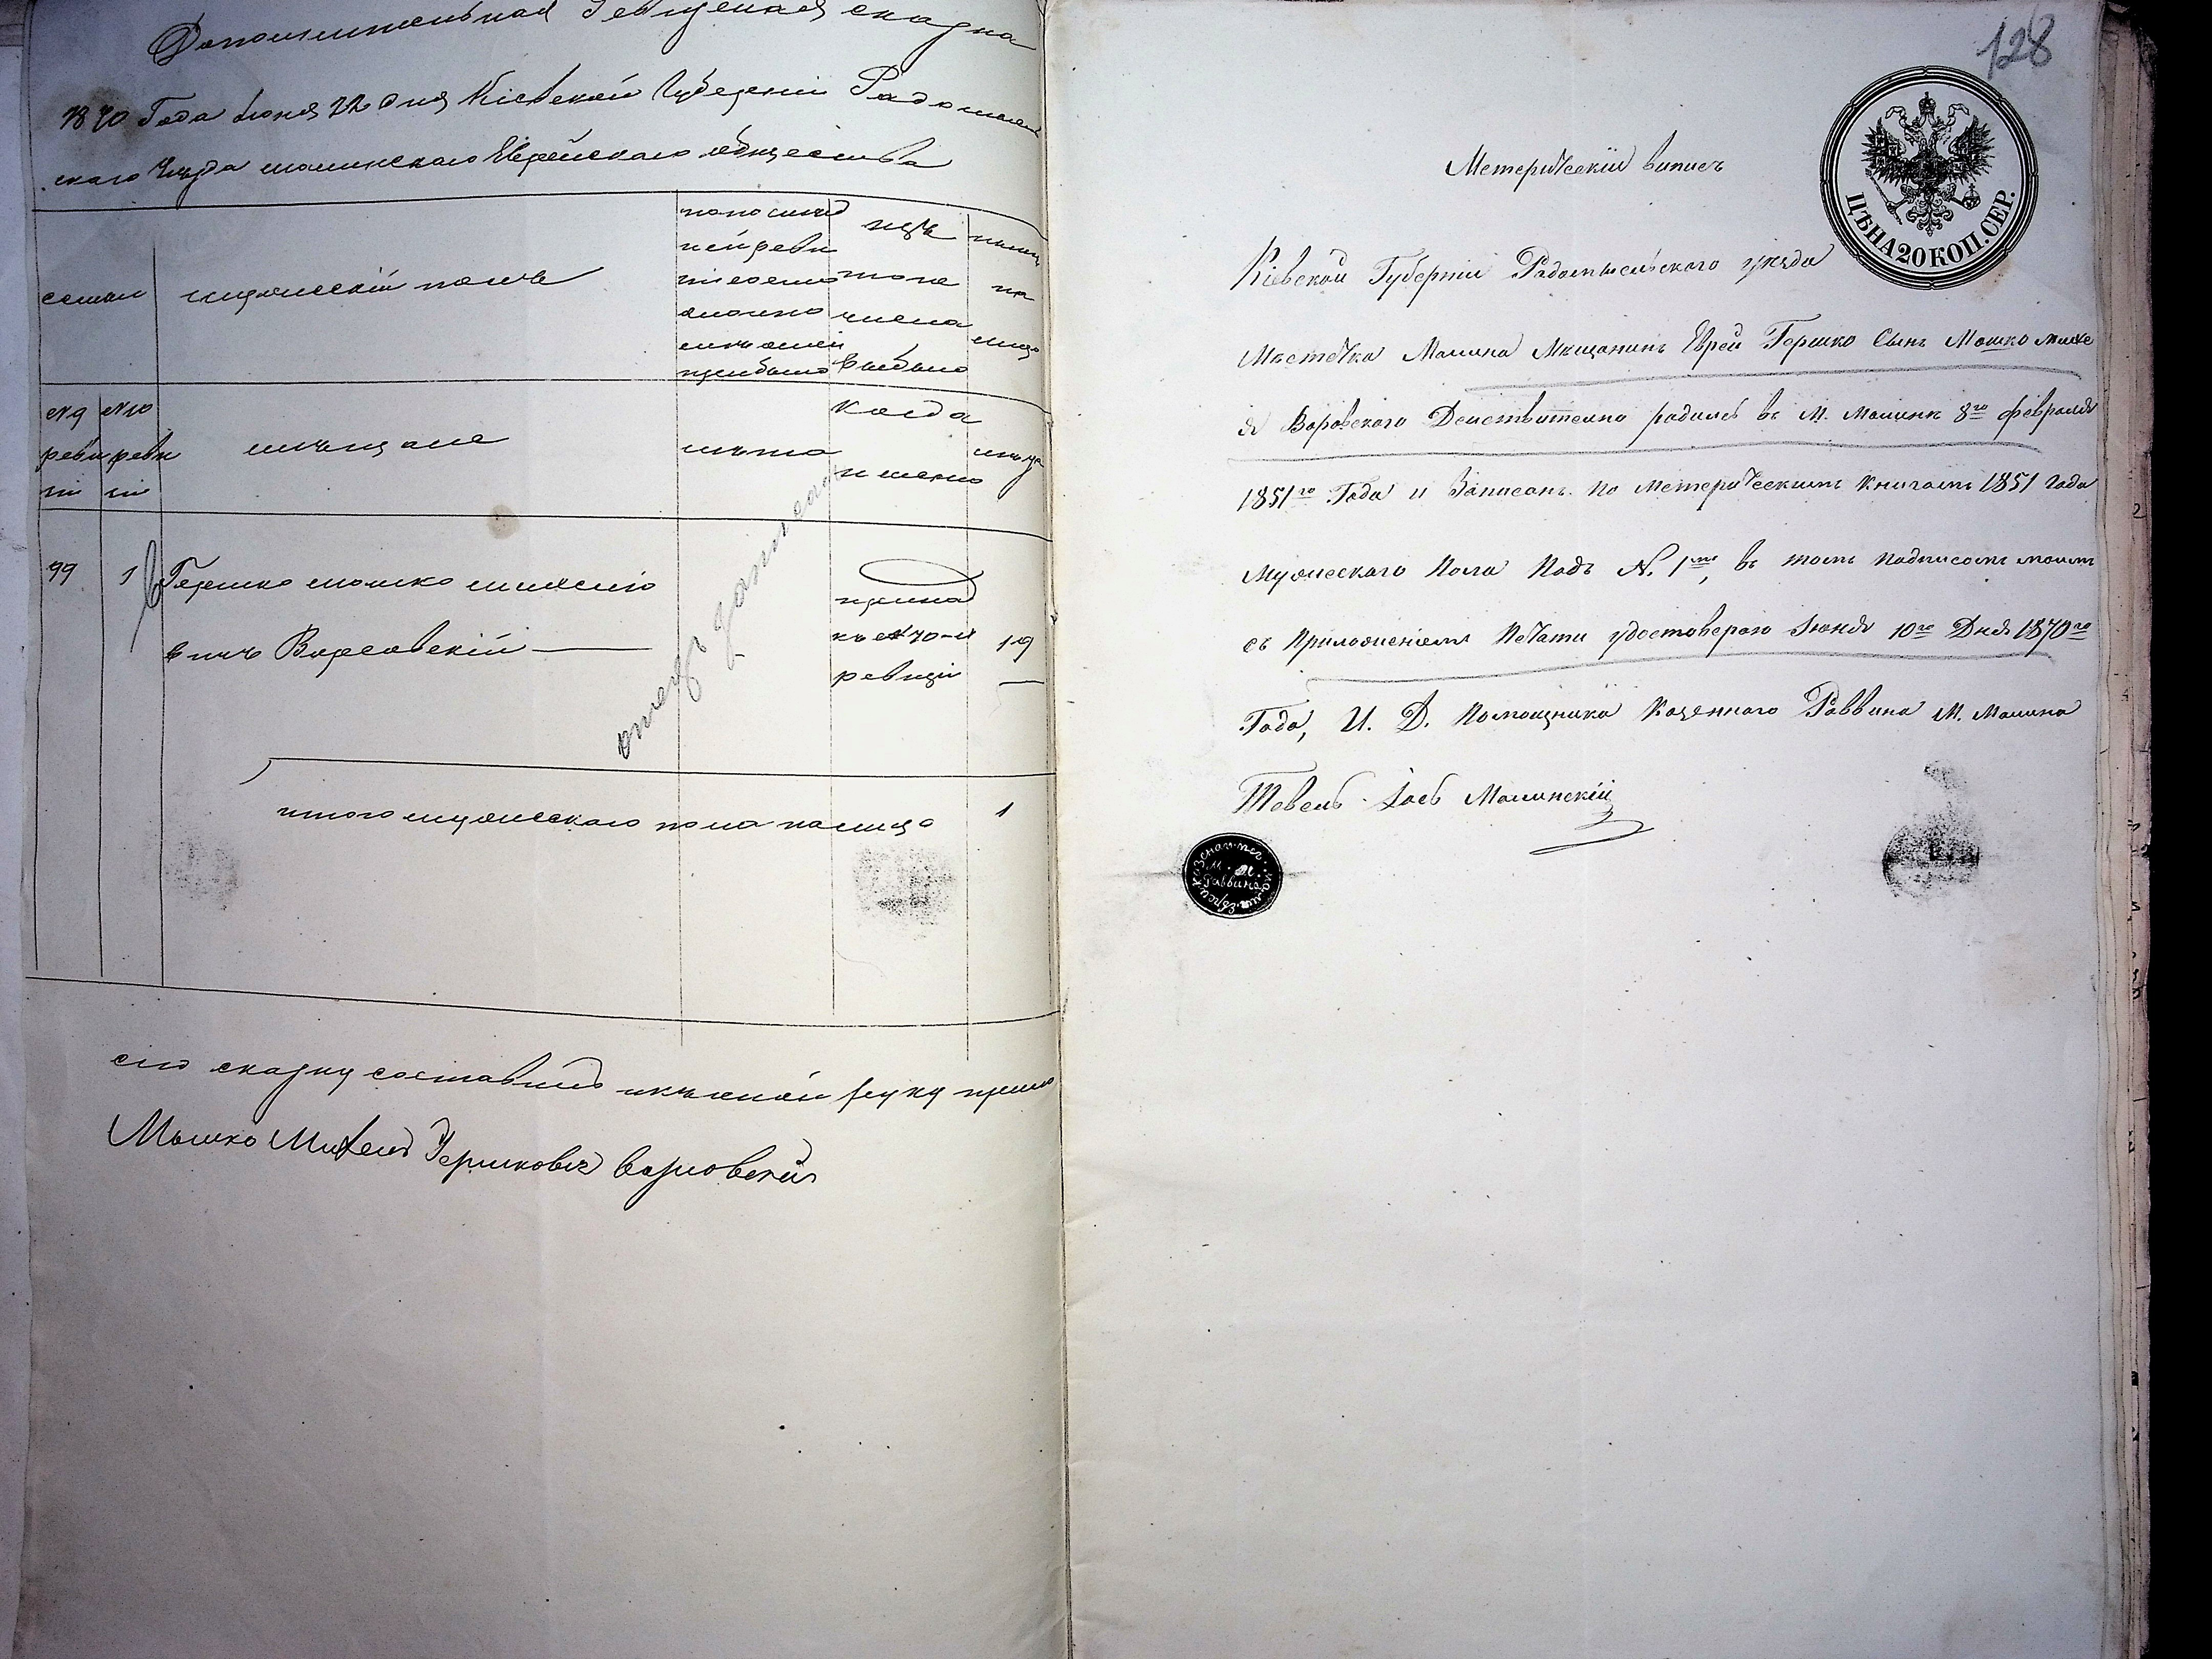 Дополнительная Ревизская сказка
1870 Года Июня 22 дня Кіевской Губерніи Радомысль
скаго Уезда малинскаго Еврейскаго общества
семьи
мужескій полъ
по послѣд
ней реви
зіи состо
яло и по
слѣ оной
прибыло
изъ
того
числа
выбыло
нынѣ
на
лицо
№ 9 № 10
реви реви
зіи зіи
мѣщане
лѣта
когда
именно
лѣта
99 1 Гершко мошко михелю
вичъ Ворсовскій
отецъ записанъ
кь № 10-й
ревизіи
19
итого мужескаго пола налицо 1
сію сказку составилъ и къ оной руку прило
Мошко Михель Гершковичъ Ворсовскій
128
Метерическій випись
ЦѢНА 20 КОП. СЕР.
Кіевской Губерніи Радомысельского уезда
Мѣстечка Малина Мѣщанинъ Еврей Гершко Сынъ Мошко михе
ля Ворсвского Действително родился въ М. Малинѣ 8го февраля
1851го Года и Записанъ по Метерическимъ Книгамъ 1851 Года
Мужескаго Пола Подъ N. 1мъ, въ томъ Подписомъ моимъ
съ Приложеніемъ Печати удостоверяю Іюня 10го Дня 1870го
Года, И. Д. Помощника Казенного Раввина М. Малина
Тевель Іось Малинскій
М. М.
Раввина